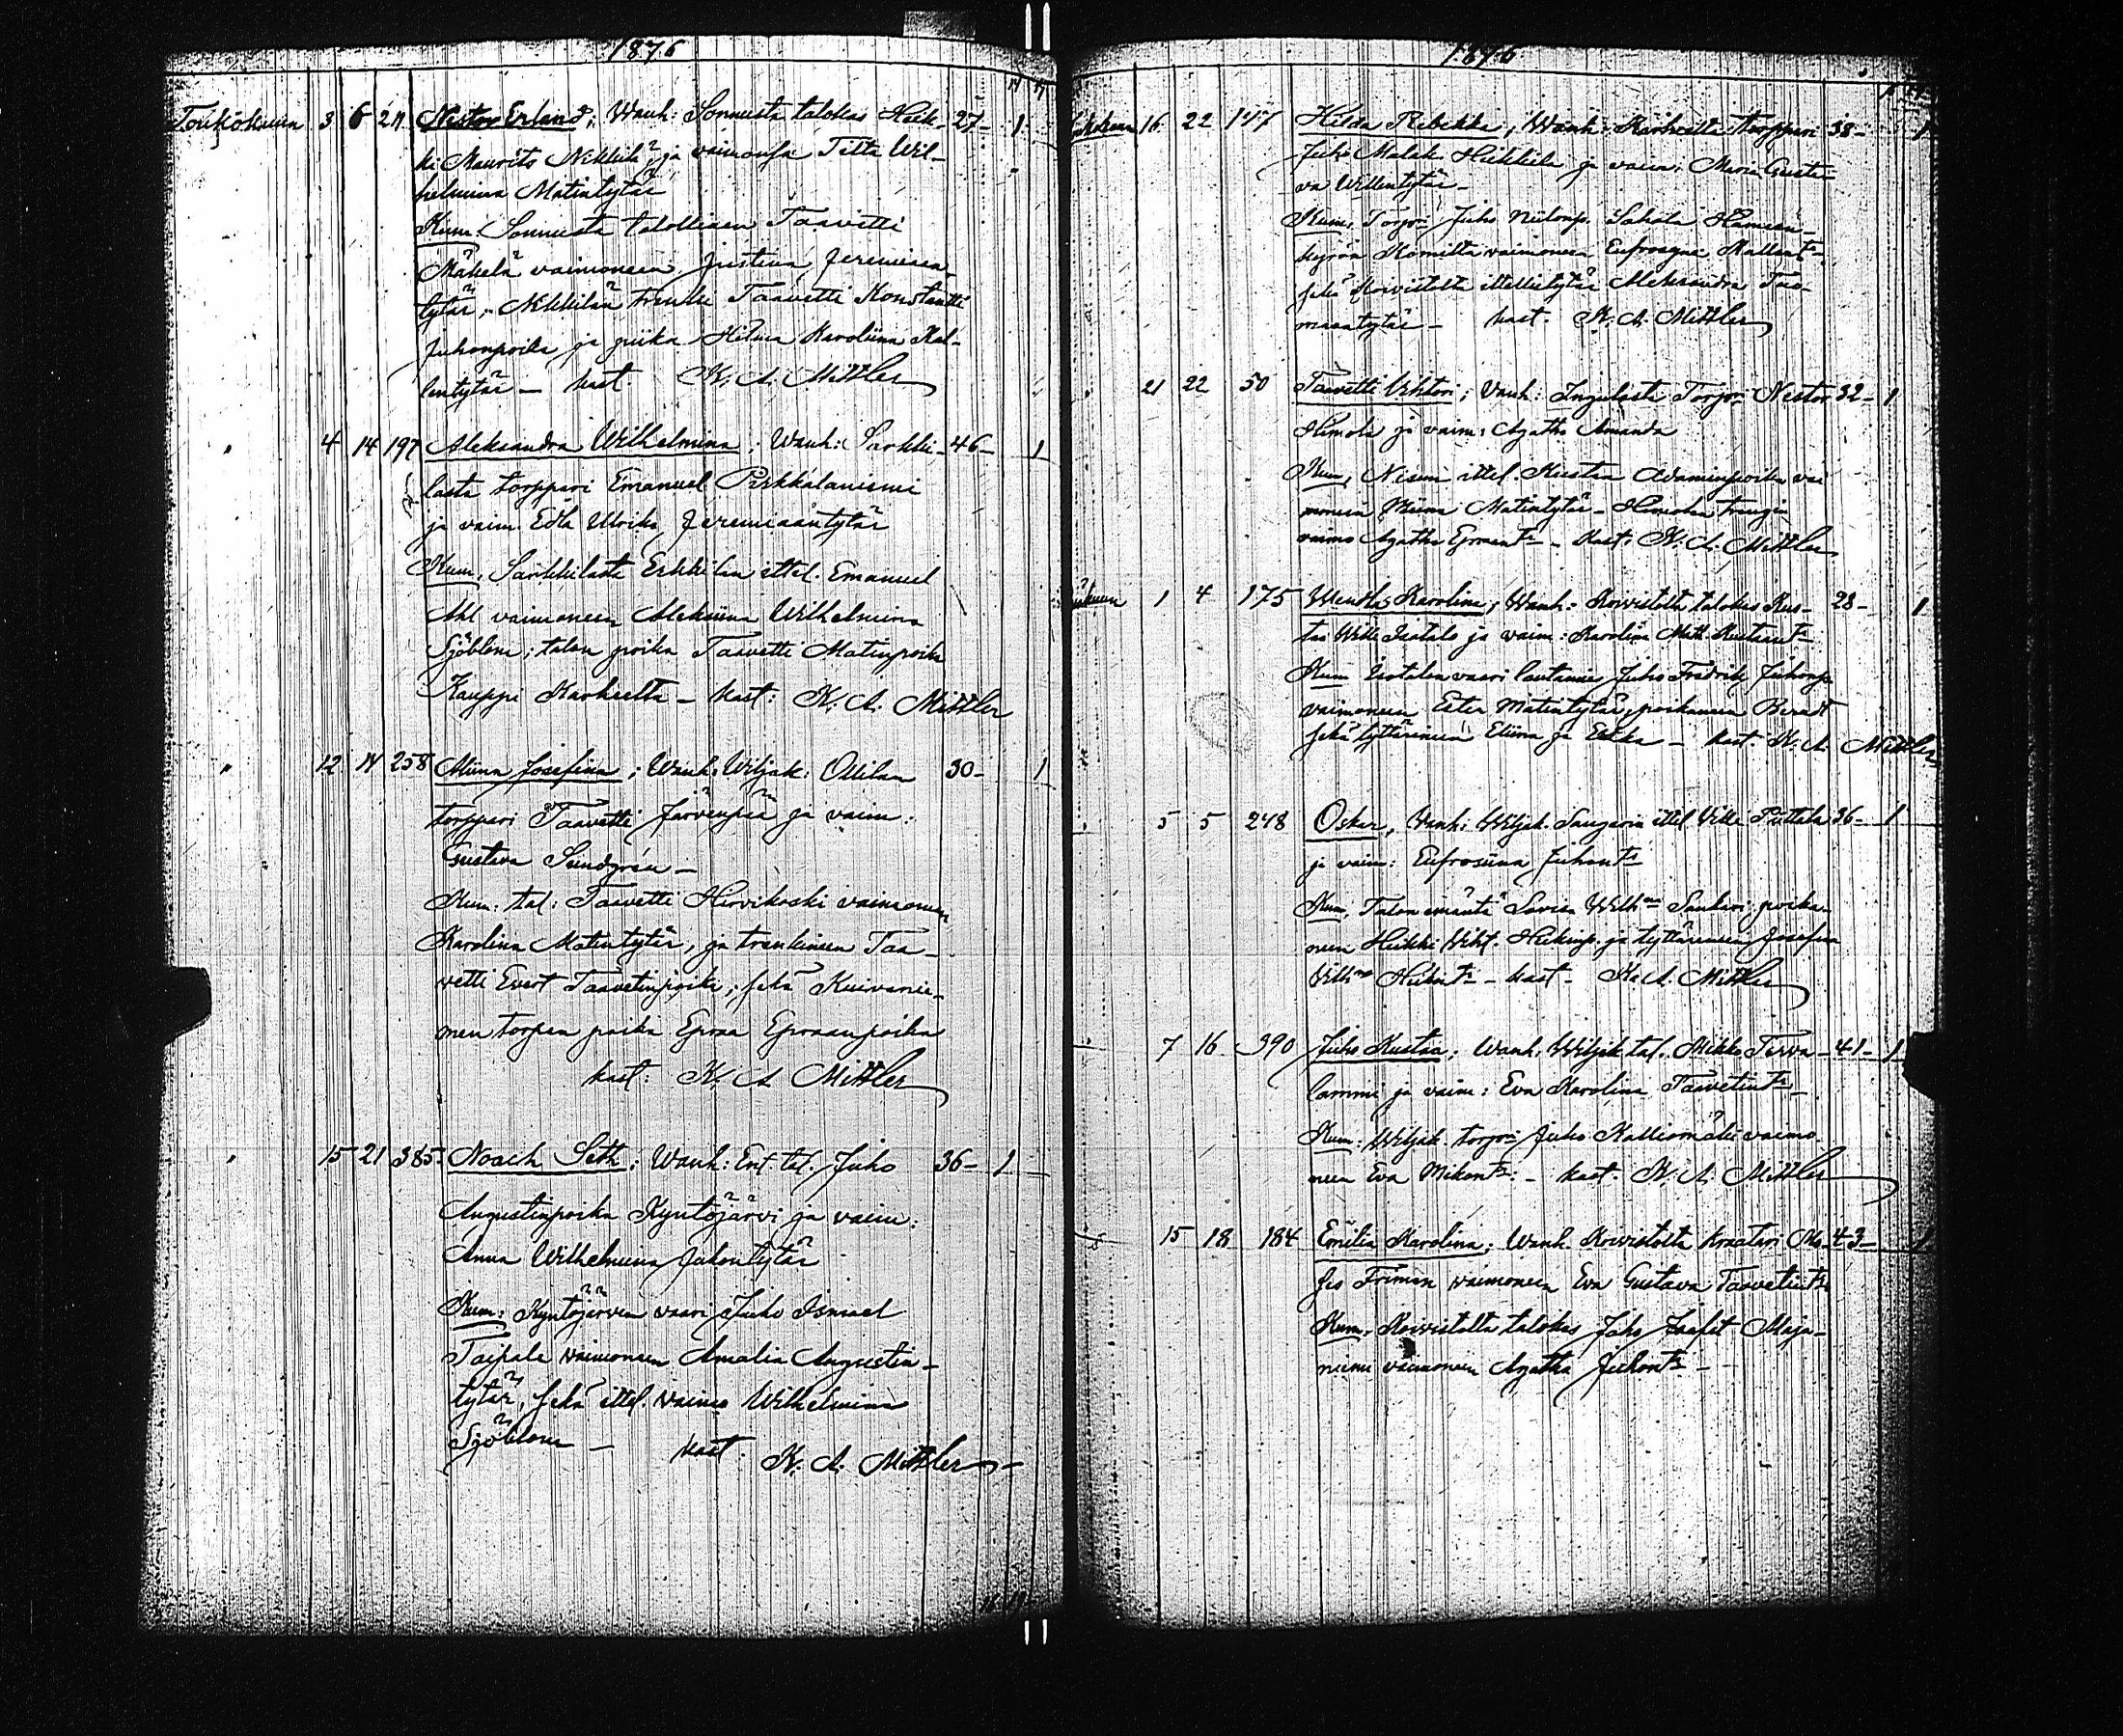 1876
Toukokuun 3 6 211 Nestor Erland; Wanh: Sonnusta talokas Heik- 27- 1
ki Mauritz Nikkilä ja vaimonsa Fetta Wil-
helmina Matintytär
Kum. Sonnusta talollinen Taavetti
Mäkelä vaimoneen Justina Jeremiaan-
tytär, Nikkilän trenki Taavetti Konstantti
Juhonpoika ja piika Hilma Karoliina Kal-
lentytär - kast. K. A. Mittler
" 4 14 197 Aleksandra Wilhelmina; Wanh: Sarkki- 46- 1
lasta torppari Emanuel Pirkkalaniemi
ja vaim. Edla Ulrika Jeremiaantytär
Kum. Sarkkilasta Erkkilän ittel. Emanuel
Ahl vaimoneen Aleksiina Wilhelmina
Sjöblom; talon poika Taavetti Matinpoika
Kauppi Karheelta - kast: K. A. Mittler
" 12 14 258 Miina Josefina; Wanh. Wiljak: Ollilan 30- 1
torppari Taavetti Järvenpää ja vaim.
Gustava Sundgrén -
Kum: tal: Taavetti Hirvikoski vaimoneen
Karolina Matintytär, ja trenkineen Taa-
vetti Evert Taavetinpoika; sekä Kuivanie-
men torpan poika Eproa Eproanpoika
kast: K. A Mittler
" 15 21 385 Noach Seth; Wanh: Ent tal. Juho 36- 1
Augustinpoika Kyntöjärvi ja vaim:
Anna Wilhelmina Juhontytär
Kum: Kyntöjärven vaari Juho Ismael
Taipale vaimoneen Amalia Augustin-
tytär, sekä ittel. vaimo Wilhelmina
Sjöblom - kast. K. A. Mittler
1876
16 22 147 Hilda Rebekka; Wanh: Karheelta torppari 38- 1
Juho Malak. Heikkilä ja vaim: Maria Gusta-
va Willentytär -
Kum, Torpri Juho Niilonp. Sakala Hämeen-
kyrön Komilta vaimoneen Eufrosyne Kallent-
sekä Koivistolta ittellistytär Aleksandra Tuo-
maantytär - kast. K. A. Mittler
21 22 50 Taavetti Vihtori; Vanh: Inguilasta Torpri Nestor 32- 1
Himola ja vaim: Agatha Amanda
Kum, Niemi ittel. Kustaa Adaminpoika vai
moneen Miina Matintytär - Himolan trengin
vaimo Agatha - Kast: K. A. Mittler
1 4 175 Wendla Karolina; Wanh: Koivistolta talokas Kus- 28- 1
taa Wille Isotalo ja vaim: Karolina Math. Kustaant
Kum Isotalon vaari lautamies Juho Fredrik Juhonp.
vaimoneen Ester Matintytär, poikaneen Berndt
sekä tyttärineen Eliina ja - kast. K. A. Mittler
5 5 248 Oskar, Wanh: Wiljak. Saugarin ittel Ville Puttala 36- 1
ja vaim: Eufrosiina Juhont
Kum, Talon emäntä Loviisa Wilhna Saukari poika-
neen Heikki Viht. Heikinp. ja tyttärineen Josefina
Vilhna Heikint - kast - K. A. Mittler
7 16 390 Juho Kustaa; Wanh. Wiljak tal. Mikko Terva- 41- 1
lammi ja vaim: Eva Karolina Taavetint
Kum: Wiljak torpri Juho Kalliomäki vaimo-
neen Eva Mikont: - kast. K. A. Mittler
15 18 184 Emilia Karolina; Wanh. Koivistolta kraatari Mo- 43- 1
ses Friman vaimoneen Eva Gustava Taavetint
Kum, Koivistolta talokas Juho Jaafet Maja-
niemi vaimoneen Agatha Juhont -